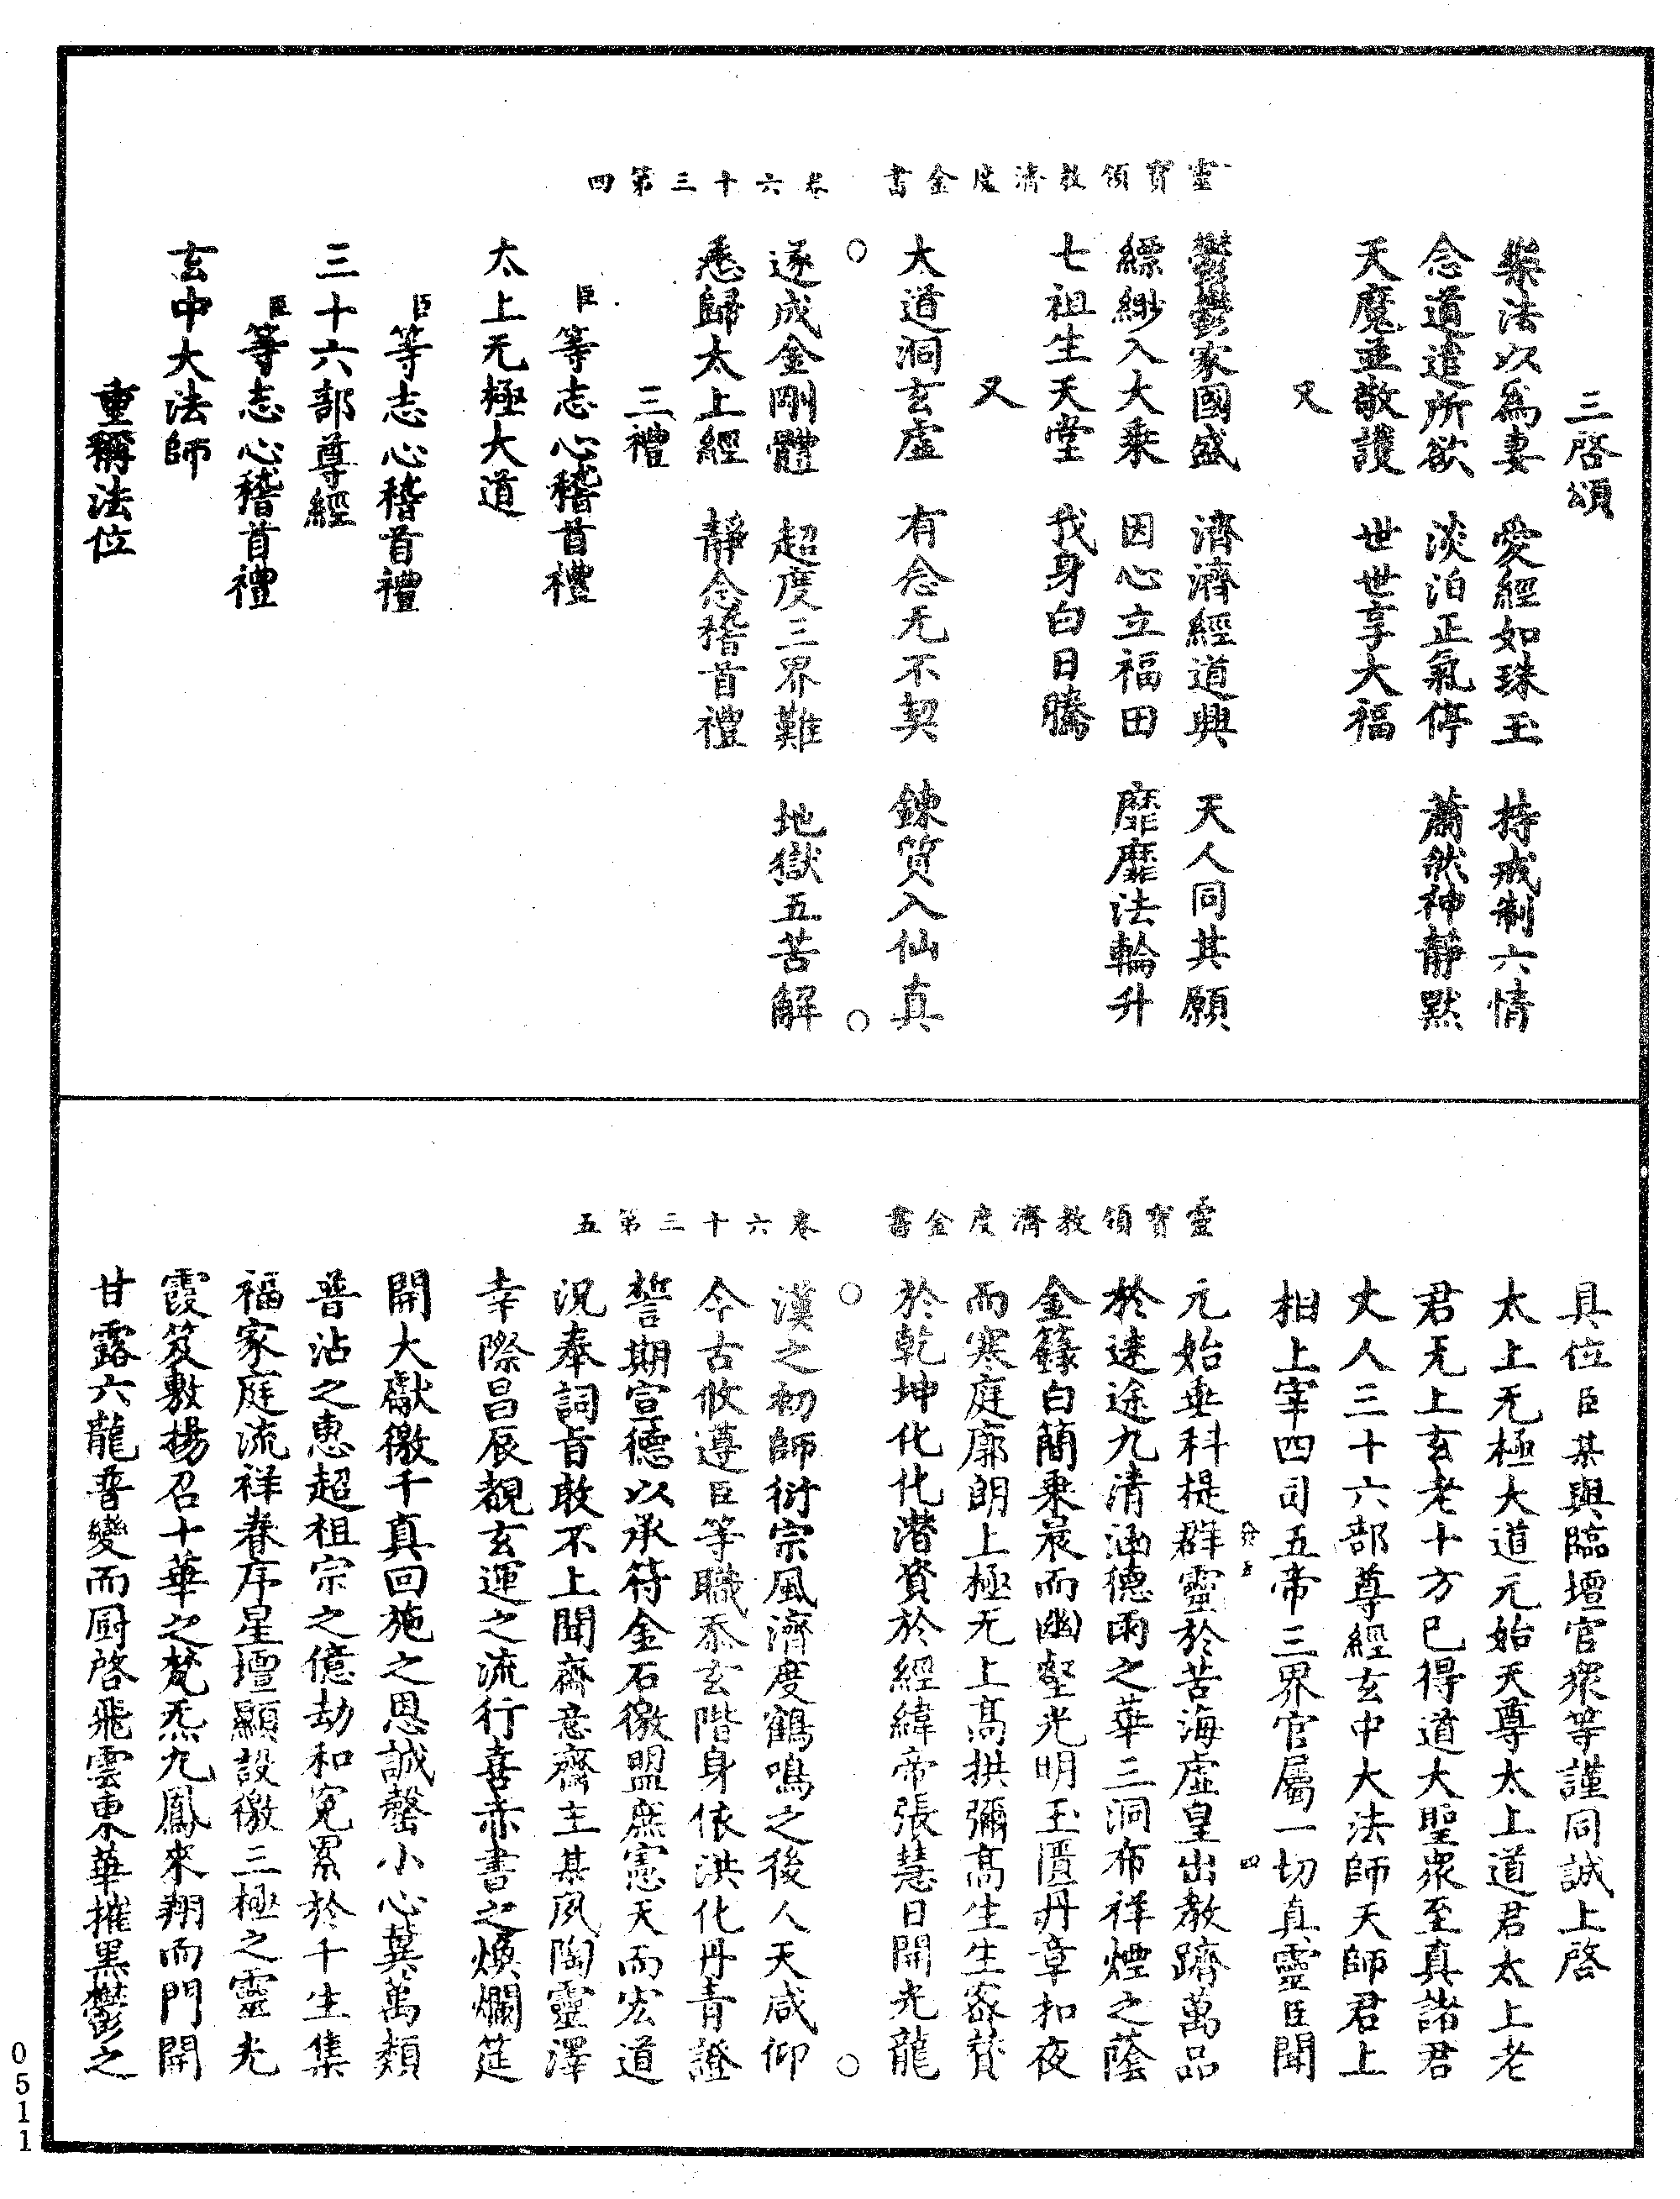 靈寶領教濟度金書 卷六十三第四
三啓頌
樂法以爲妻 愛經如珠玉 持戒制六情
念道遣所欲 淡泊正氣停 蕭然神靜默
天魔並敬護 世世享大福
又
鬱鬱家國盛 濟濟經道興 天人同其願
縹緲入大乘 因心立福田 靡靡法輪升
七祖生天堂 我身白日騰
又
大道洞玄虛 有念无不契 鍊質入仙真
遂成金剛體 超度三界難 地獄五苦解
悉歸太上經 靜念稽首禮
三禮
臣等志心稽首禮
太上无極大道
臣等志心稽首禮
三十六部尊經
臣等志心稽首禮
玄中大法師
重稱法位
靈寶領教濟度金書 卷六十三第五
具位臣某與臨壇官衆等謹同誠上啓
太上无極大道元始天尊太上道君太上老
君无上玄老十方已得道大聖衆至真諸君
丈人三十六部尊經玄中大法師天師君上
相上宰四司五帝三界官屬一切真靈臣聞
元始垂科提群靈於苦海虛皇出教躋萬品
於迷途九清涵德雨之華三洞布祥煙之蔭
金籙白簡秉晨而幽壑光明玉匱丹章扣夜
而寒庭廓朗上極无上高拱彌高生生密贊
於乾坤化化潛資於經緯帝張慧日開光龍
漢之初師衍宗風濟度鶴鳴之後人天咸仰
今古攸遵臣等職忝玄階身依洪化丹青證
誓期宣德以承符金石徼盟庶憲天而宏道
況奉詞旨敢不上聞齋意齋主某夙陶靈澤
幸際昌辰覩玄運之流行喜赤書之煥爛筵
開大獻徼千真回施之恩誠罄小心冀萬類
普沾之惠超祖宗之億劫和冤累於千生集
福家庭流祥眷序星壇顯設徼三極之靈光
霞笈敷揚召十華之梵炁九鳳來翔而門開
甘露六龍晋變而厨啓飛雲東華摧黑鬱之
0511